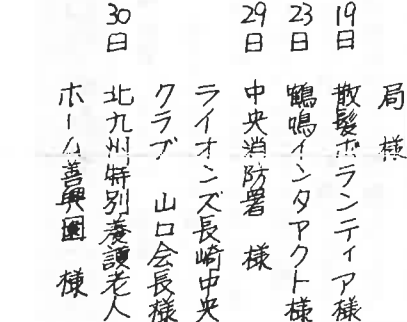 局 様
19日 散髪ボランティア様
23日 鶴鳴インタアクト様
29日 中央消防署 様
ライオンズ長崎中央
クラブ 山口会長様
30日 北九州特別養護老人
ホーム善興園 様